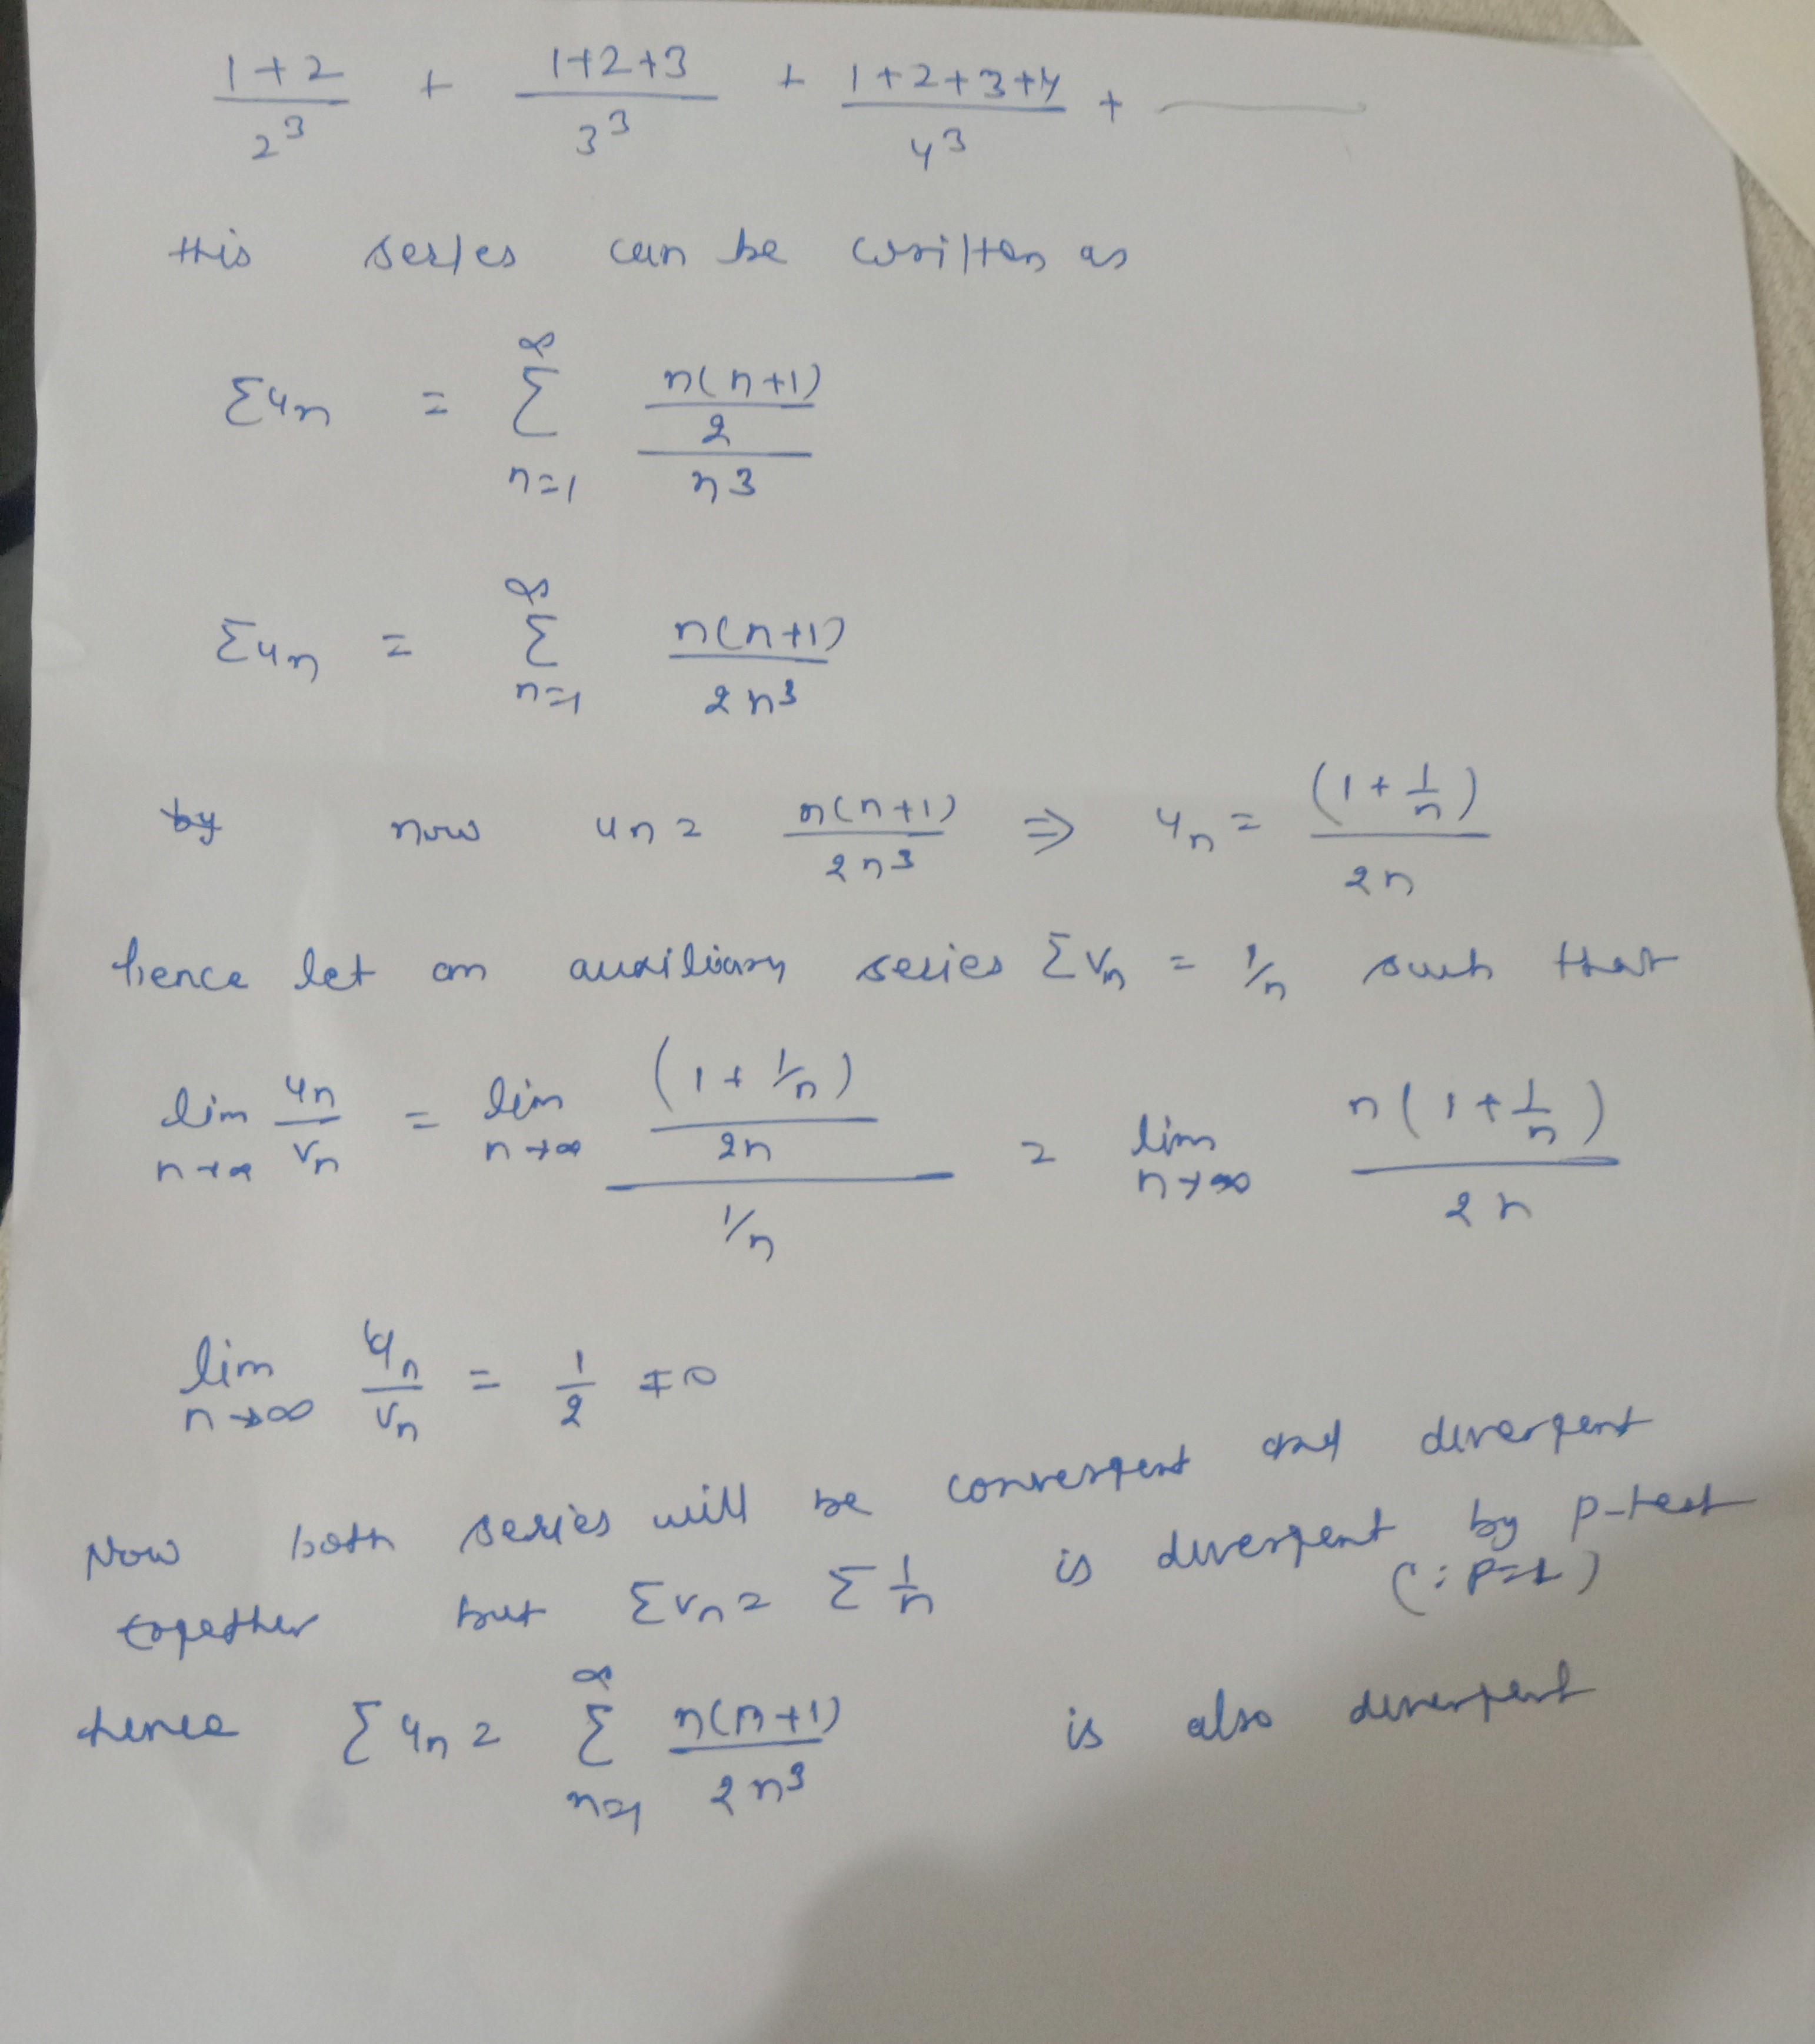 1+2/2^3 + 1+2+3/3^3 + 1+2+3+4/4^3 + ———
this series can be written as
Σun = Σ_{n=1}^{∞} (n(n+1)/2)/n3
Σun = Σ_{n=1}^{∞} n(n+1)/2n^3
by now un = n(n+1)/2n^3 ⇒ un = (1+1/n)/2n
hence let an auxiliary series Σvn = 1/n such that
lim_{n→∞} un/vn = lim_{n→∞} ((1+1/n)/2n)/(1/n) = lim_{n→∞} n(1+1/n)/2n
lim_{n→∞} un/vn = 1/2 ≠ 0
Now both series will be convergent and divergent
together but Σvn = Σ1/n is divergent by p-test
(∵ p=1)
hence Σun = Σ_{n=1}^{∞} n(n+1)/2n^3 is also divergent